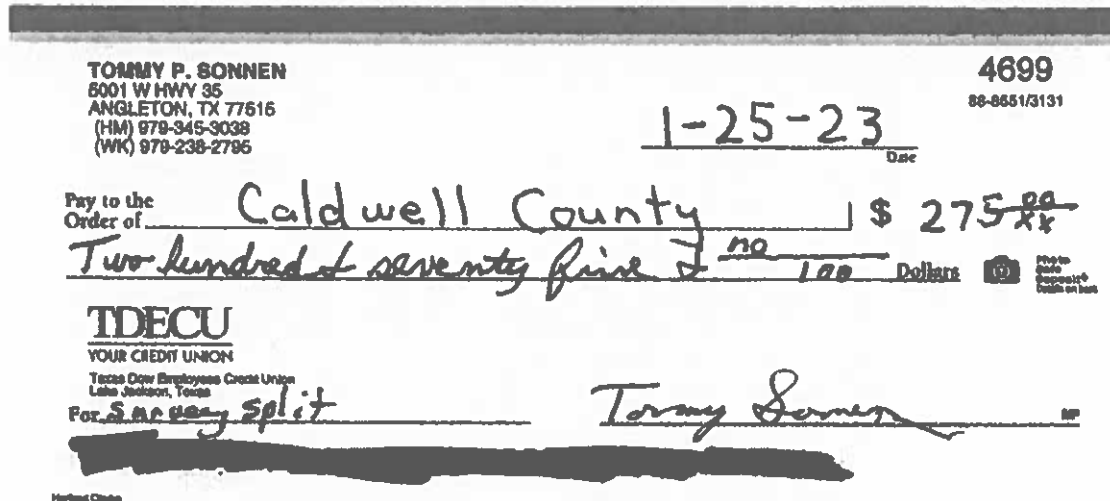 TOMMY P. SONNEN
4699
5001 W HWY 35
ANGLETON, TX 77515
88-8551/3131
(HM) 979-345-3038
(WK) 979-238-2795
1-25-23
Date
Pay to the
Order of Caldwell County $ 275 00/xx
Two hundred & seventy five & no/100 Dollars
TDECU
YOUR CREDIT UNION
Texas Dow Employees Credit Union
Lake Jackson, Texas
For Survey split Tommy Sonnen MP